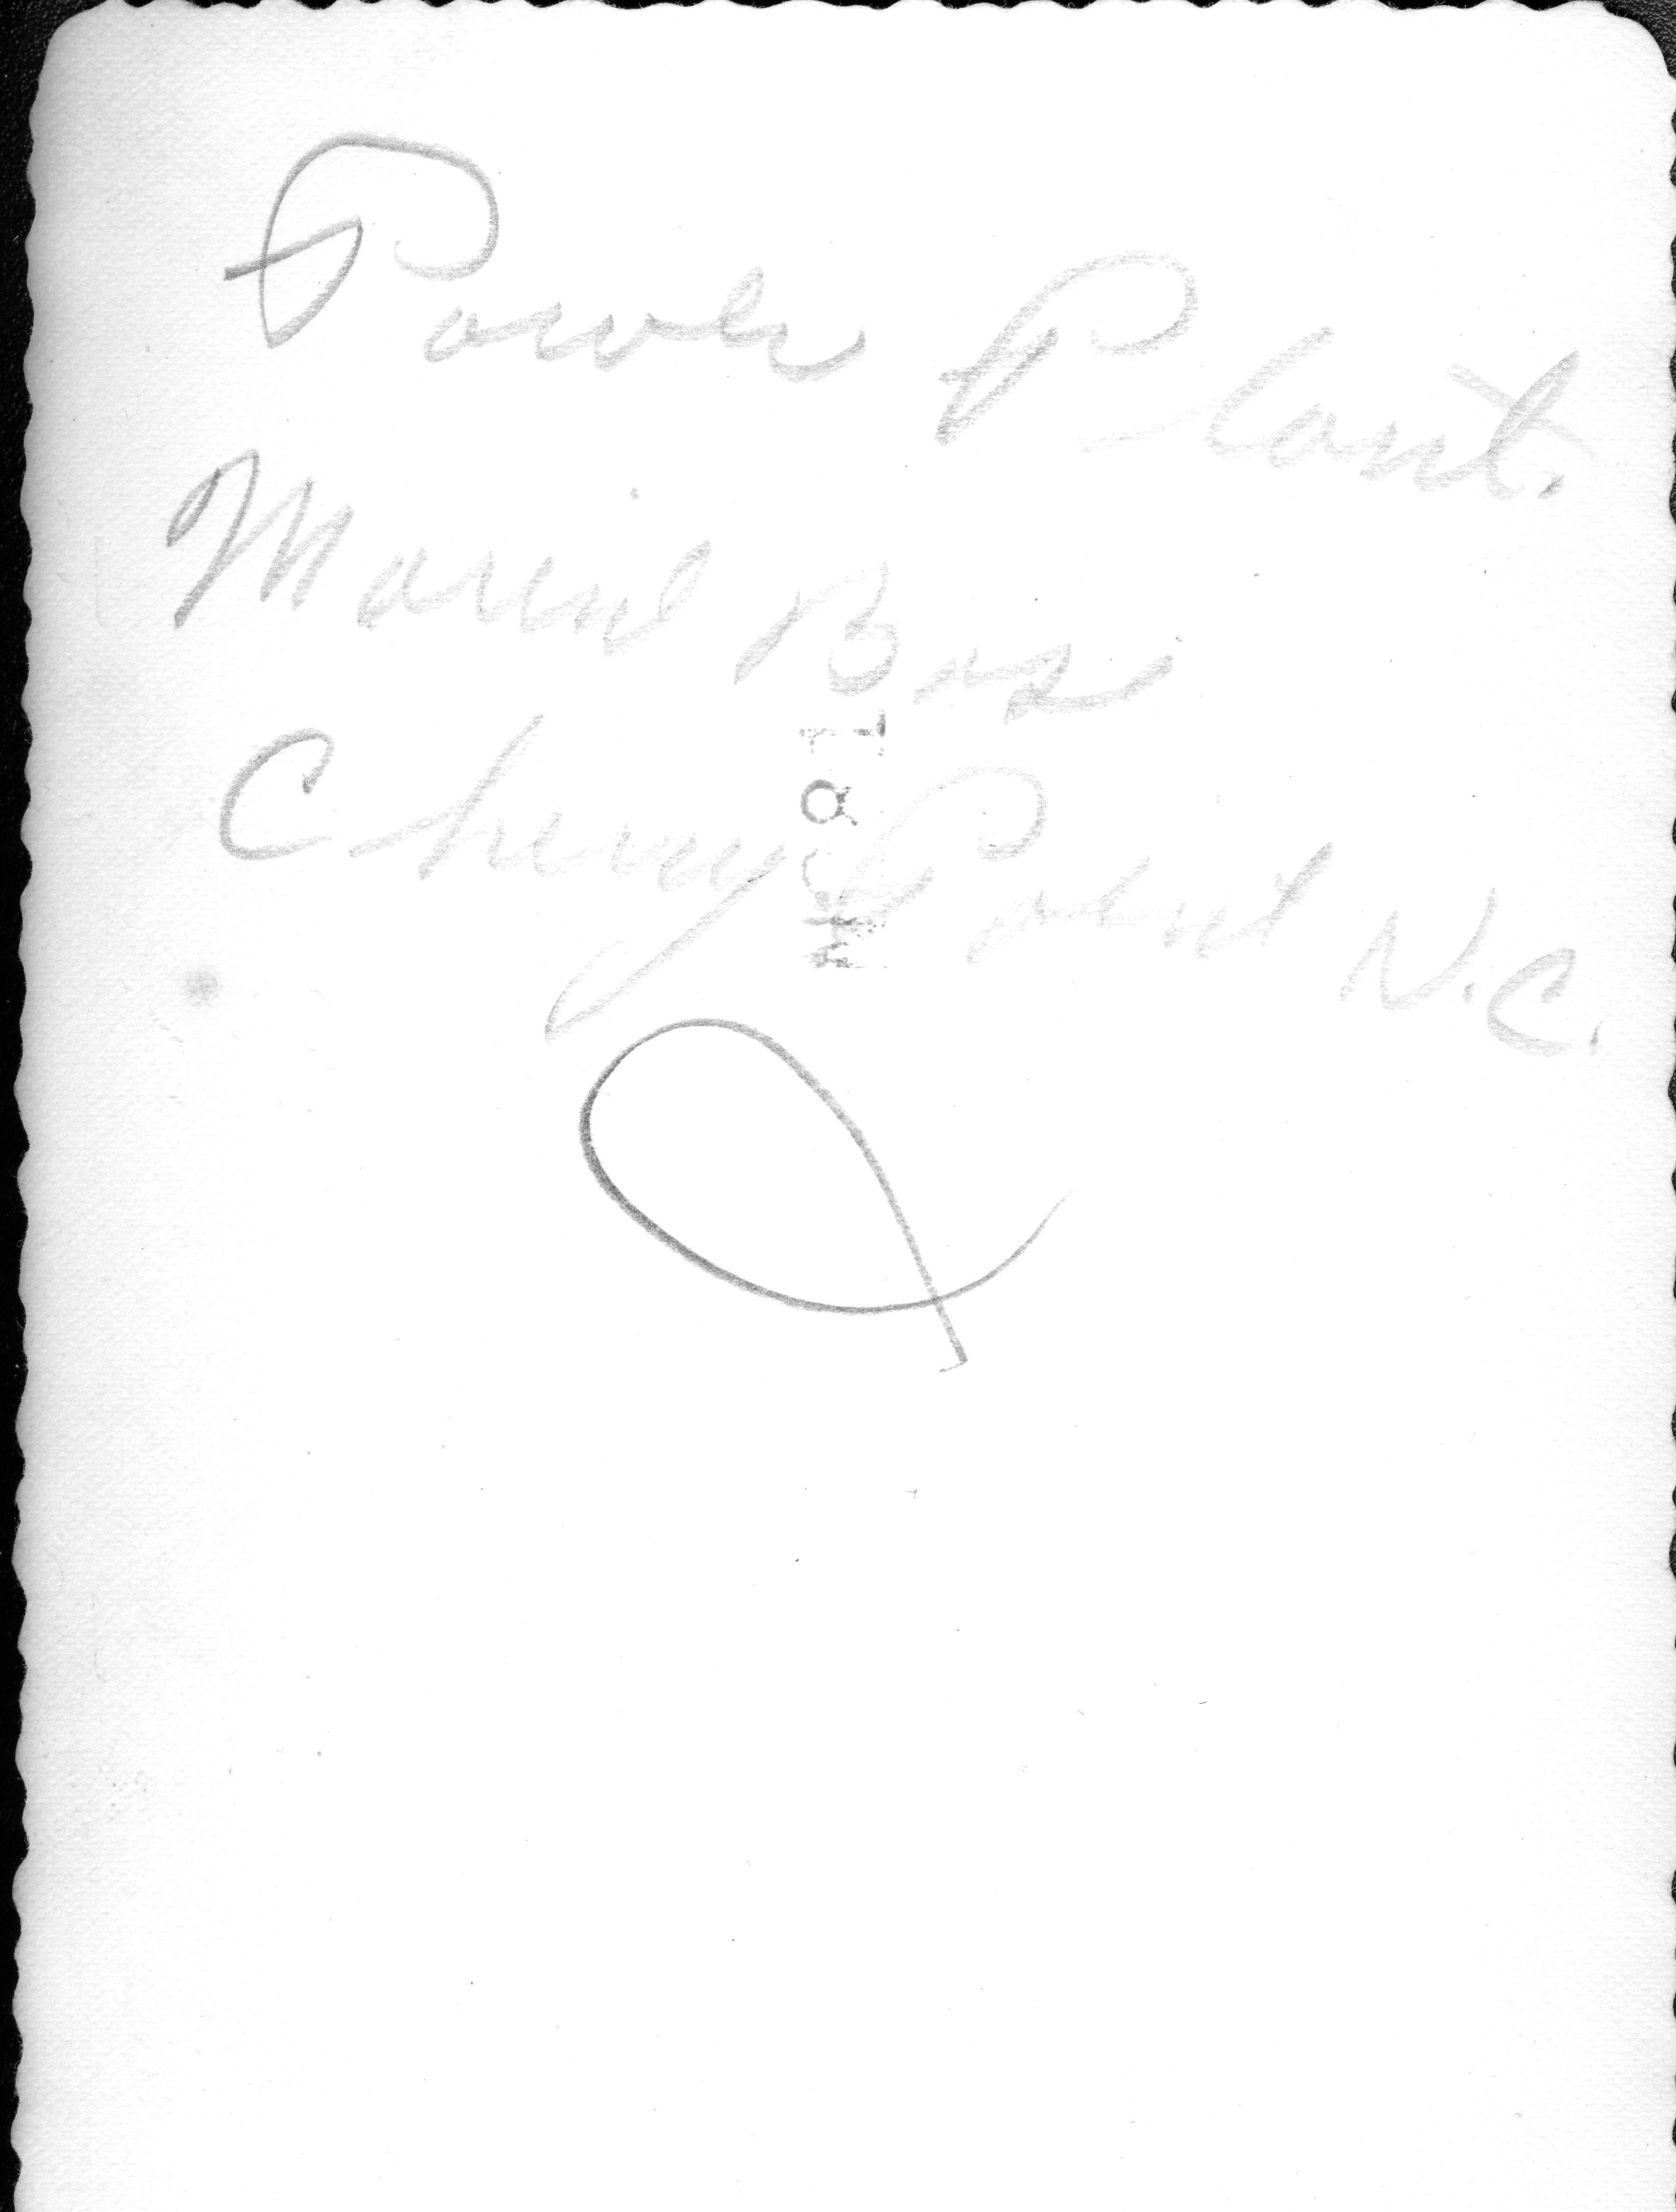 Power Plant.
Marine Bas
Cherry Point N.C.